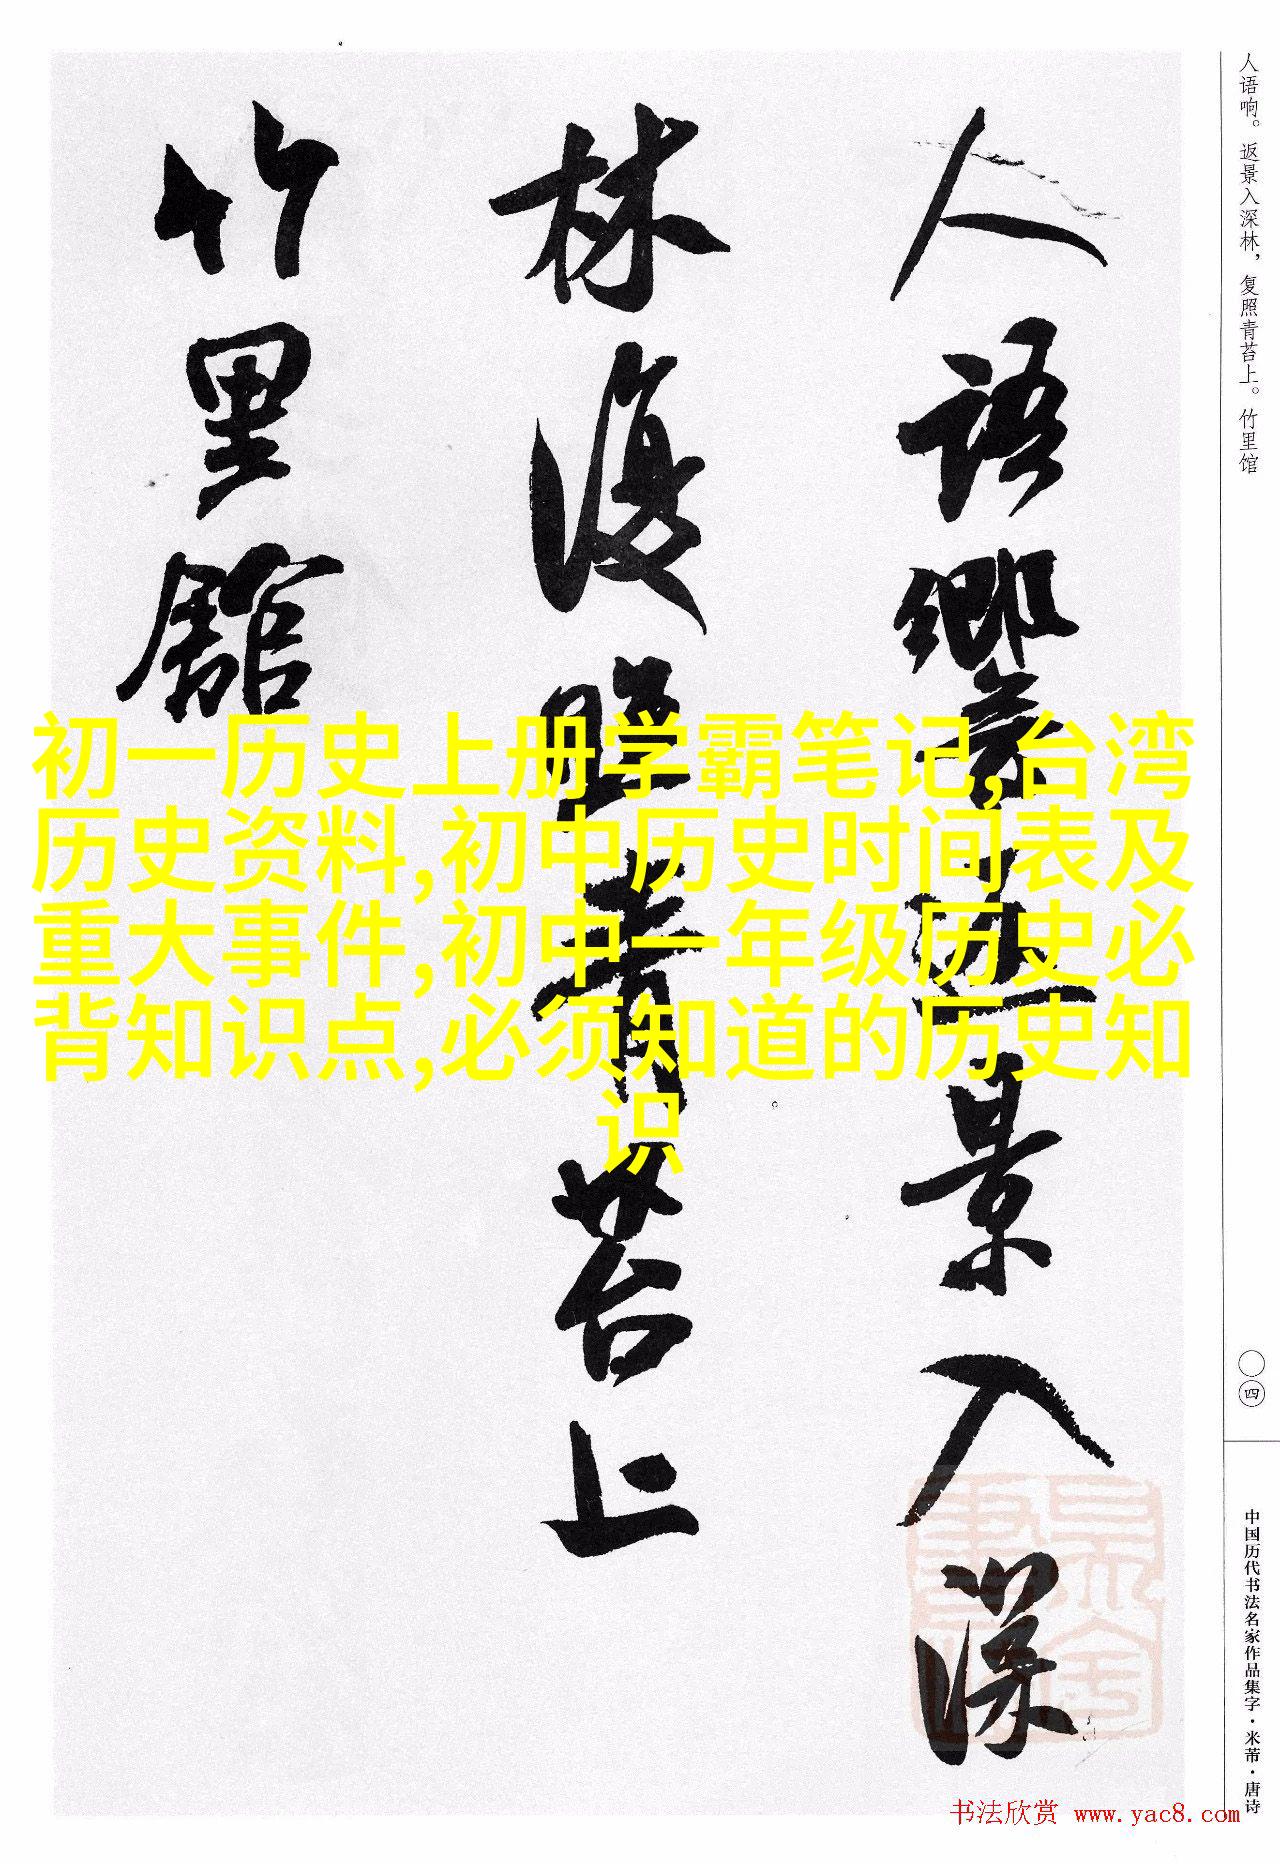 人语响。返景入深林，复照青苔上。竹里馆
人語響返景入深
林復照青苔上
竹里館
初一历史上册学霸笔记,台湾
历史资料,初中历史时间表及
重大事件,初中一年级历史必
背知识点,必须知道的历史知
识
四
中国历代书法名家作品集字·米芾·唐诗
书法欣赏 www.yac8.com